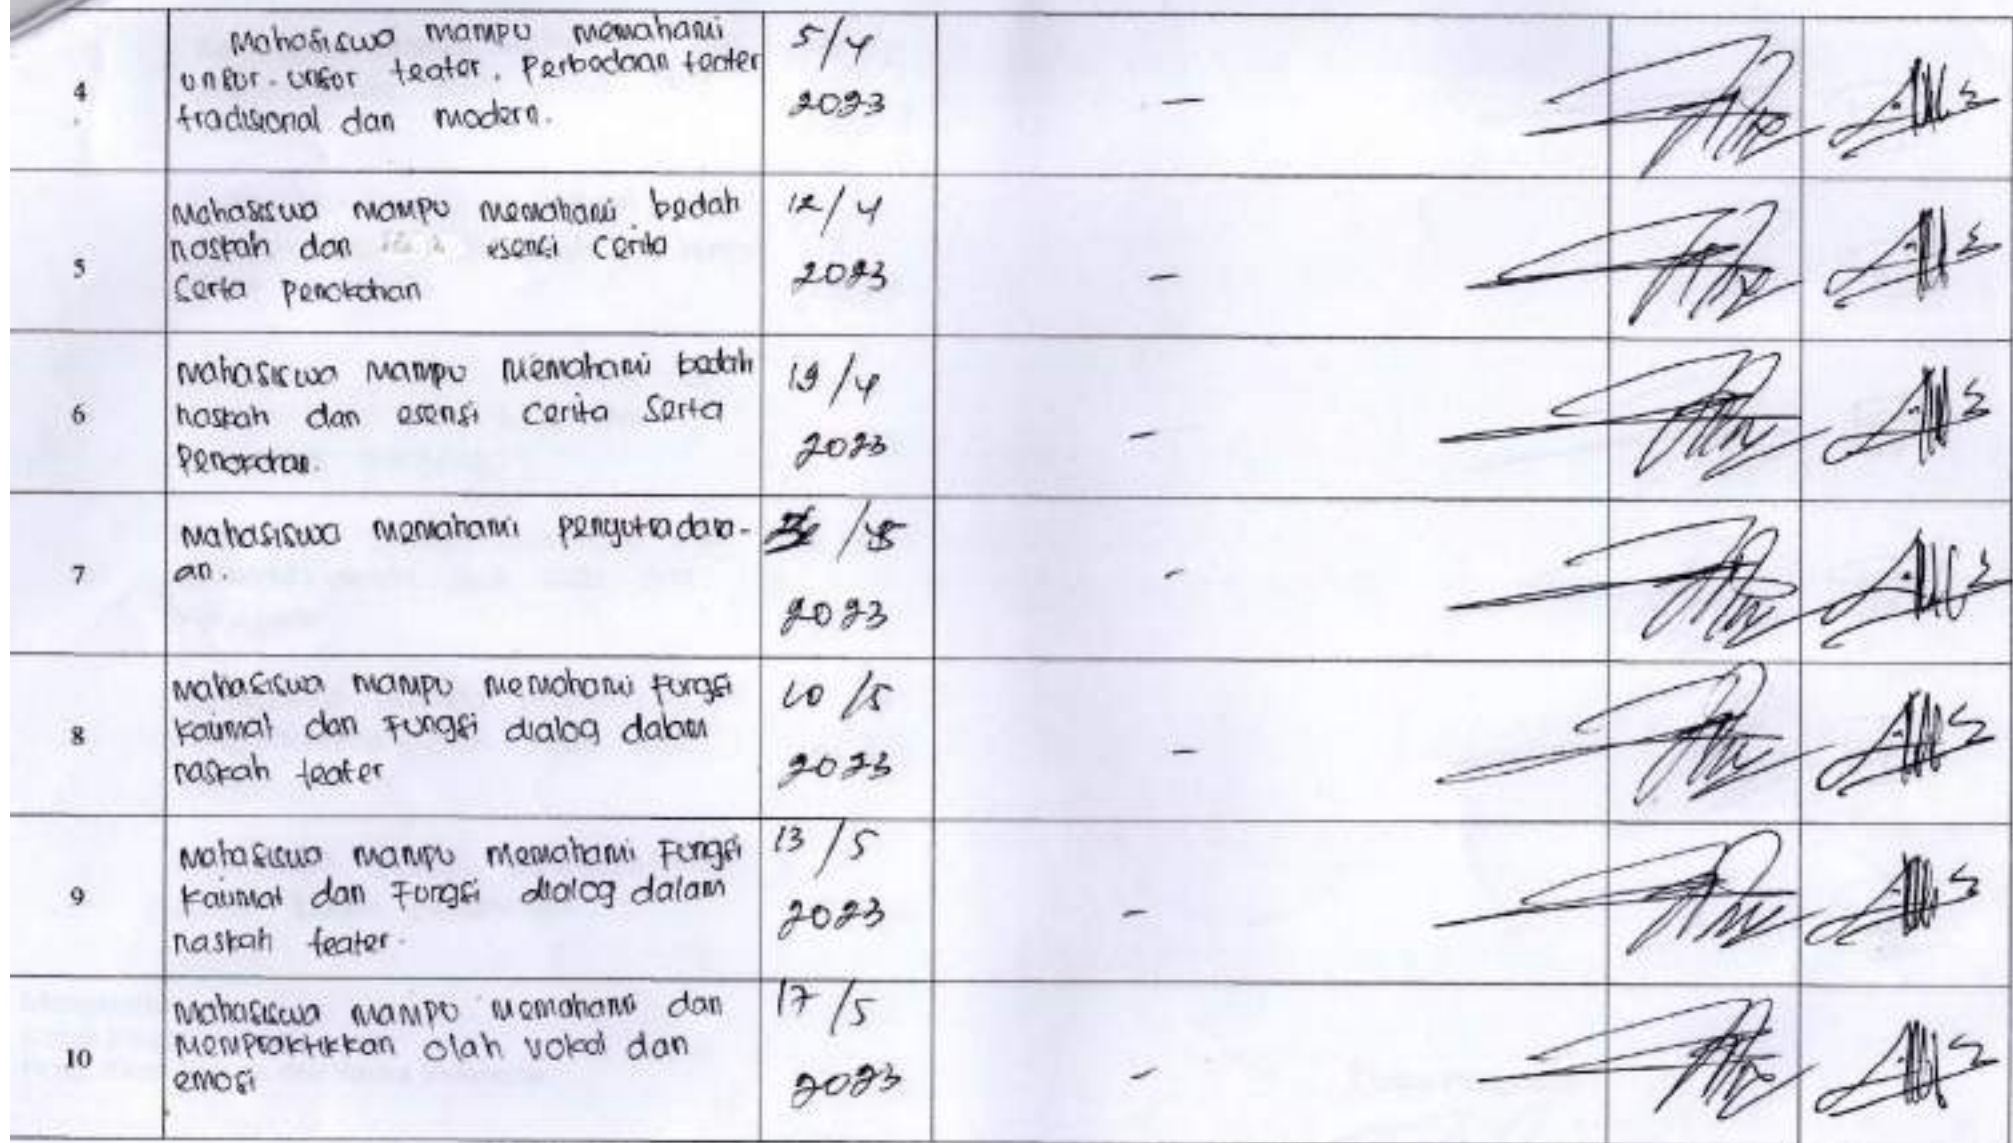 4
Mahasiswa mampu memahami
unsur-unsur teater. Perbedaan teater
tradisional dan modern.
5/4
2023
-
5
Mahasiswa mampu memahami bedah
naskah dan esensi cerita
Serta Penokohan
12/4
2023
-
6
Mahasiswa Mampu Memahami bedah
naskah dan esensi Cerita Serta
Penokohan.
19/4
2023
-
7
Mahasiswa memahami penyutradara-
an.
/5
2023
-
8
Mahasiswa Mampu Memahami Fungsi
Kalimat dan Fungsi dialog dalam
naskah teater
10/5
2023
-
9
Mahasiswa Mampu Memahami Fungsi
Kalimat dan Fungsi dialog dalam
naskah teater.
13/5
2023
-
10
Mahasiswa Mampu Memahami dan
Mempraktikkan olah vokal dan
emosi
17/5
2023
-